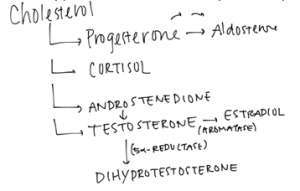 Cholesterol
Progesterone → Aldosterone
CORTISOL
ANDROSTENEDIONE
TESTOSTERONE → ESTRADIOL
(AROMATASE)
(5α-REDUCTASE)
DIHYPROTESTOSTERONE